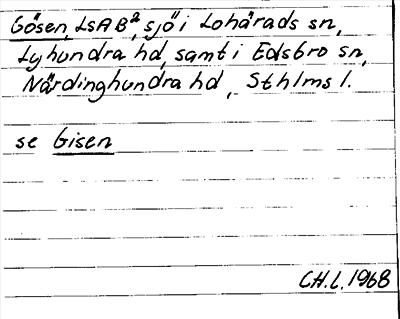 Gösen, LSAB², sjö i Lohärads sn,
Lyhundra hd, samt i Edsbro sn,
Närdinghundra hd, Sthlms l.
se Gisen
CH.L. 1968